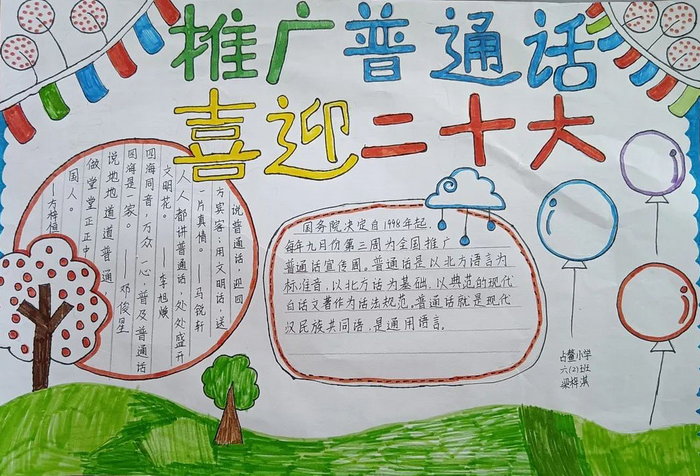 推广普通话
喜迎二十大
说普通话，迎四
方宾客；用文明话，送
一片真情。——马锐轩
人人都讲普通话，处处盛开
文明花。——李旭焕
四海同音，万众一心，普及普通话
四海是一家。——邓俊星
说地地道道普通
做堂堂正正中
国人。
——方梓恒
国务院决定自1998年起，
每年九月份第三周为全国推广
普通话宣传周。普通话是以北方语言为
标准音，以北方话为基础，以典范的现代
白话文著作为话法规范。普通话就是现代
汉民族共同语，是通用语言。
占鳌小学
六(2)班
梁梓淇